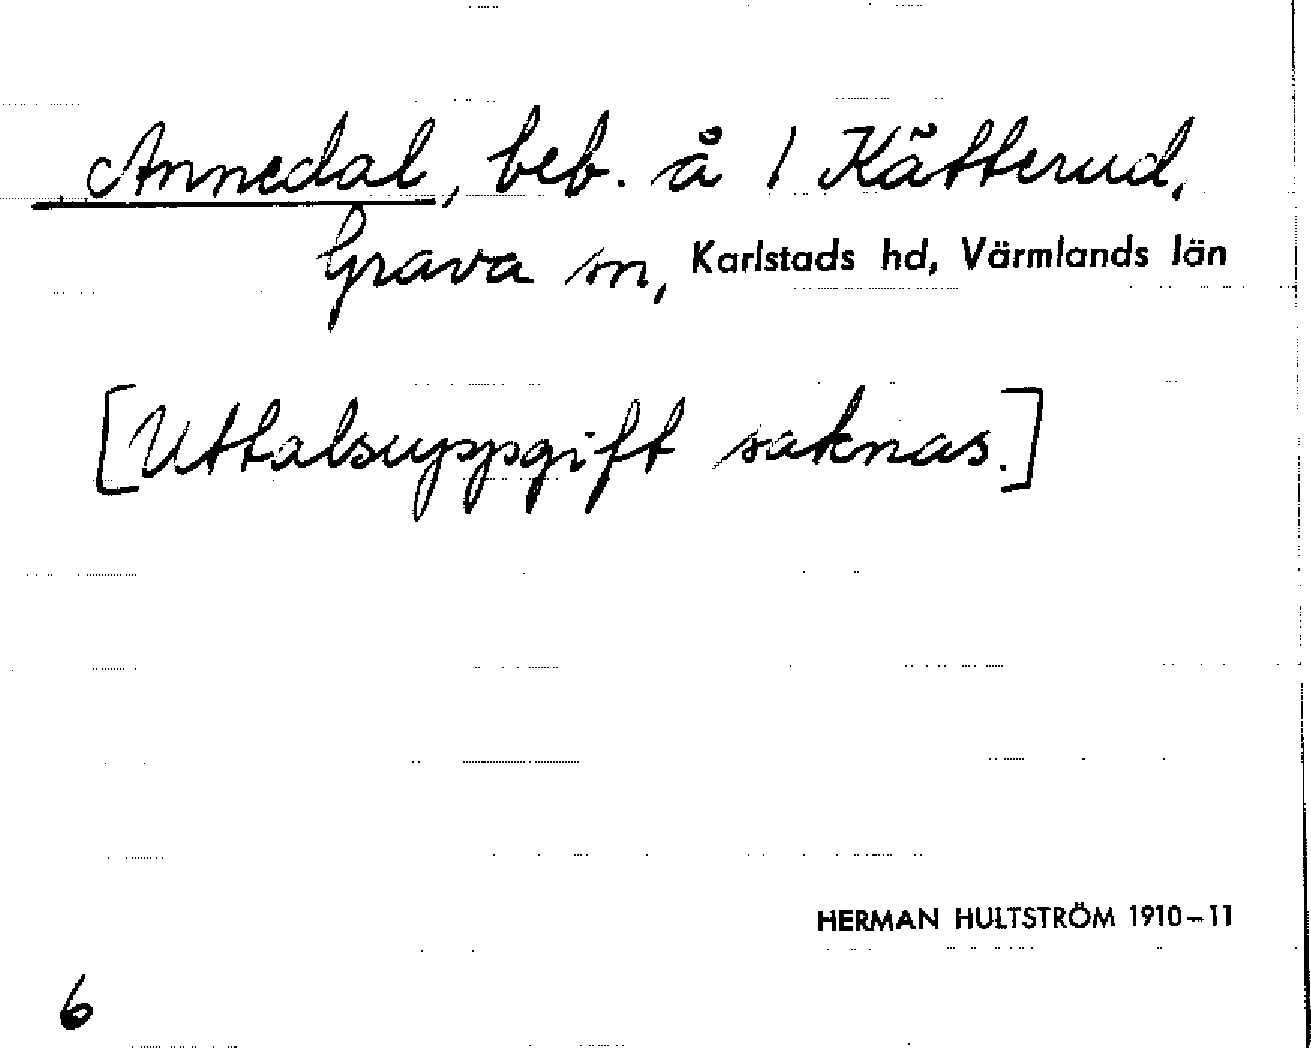 Annedal, beb. å 1 Kätterud,
Grava sn, Karlstads hd, Värmlands län
[Uttalsuppgift saknas.]
HERMAN HULTSTRÖM 1910–11
6